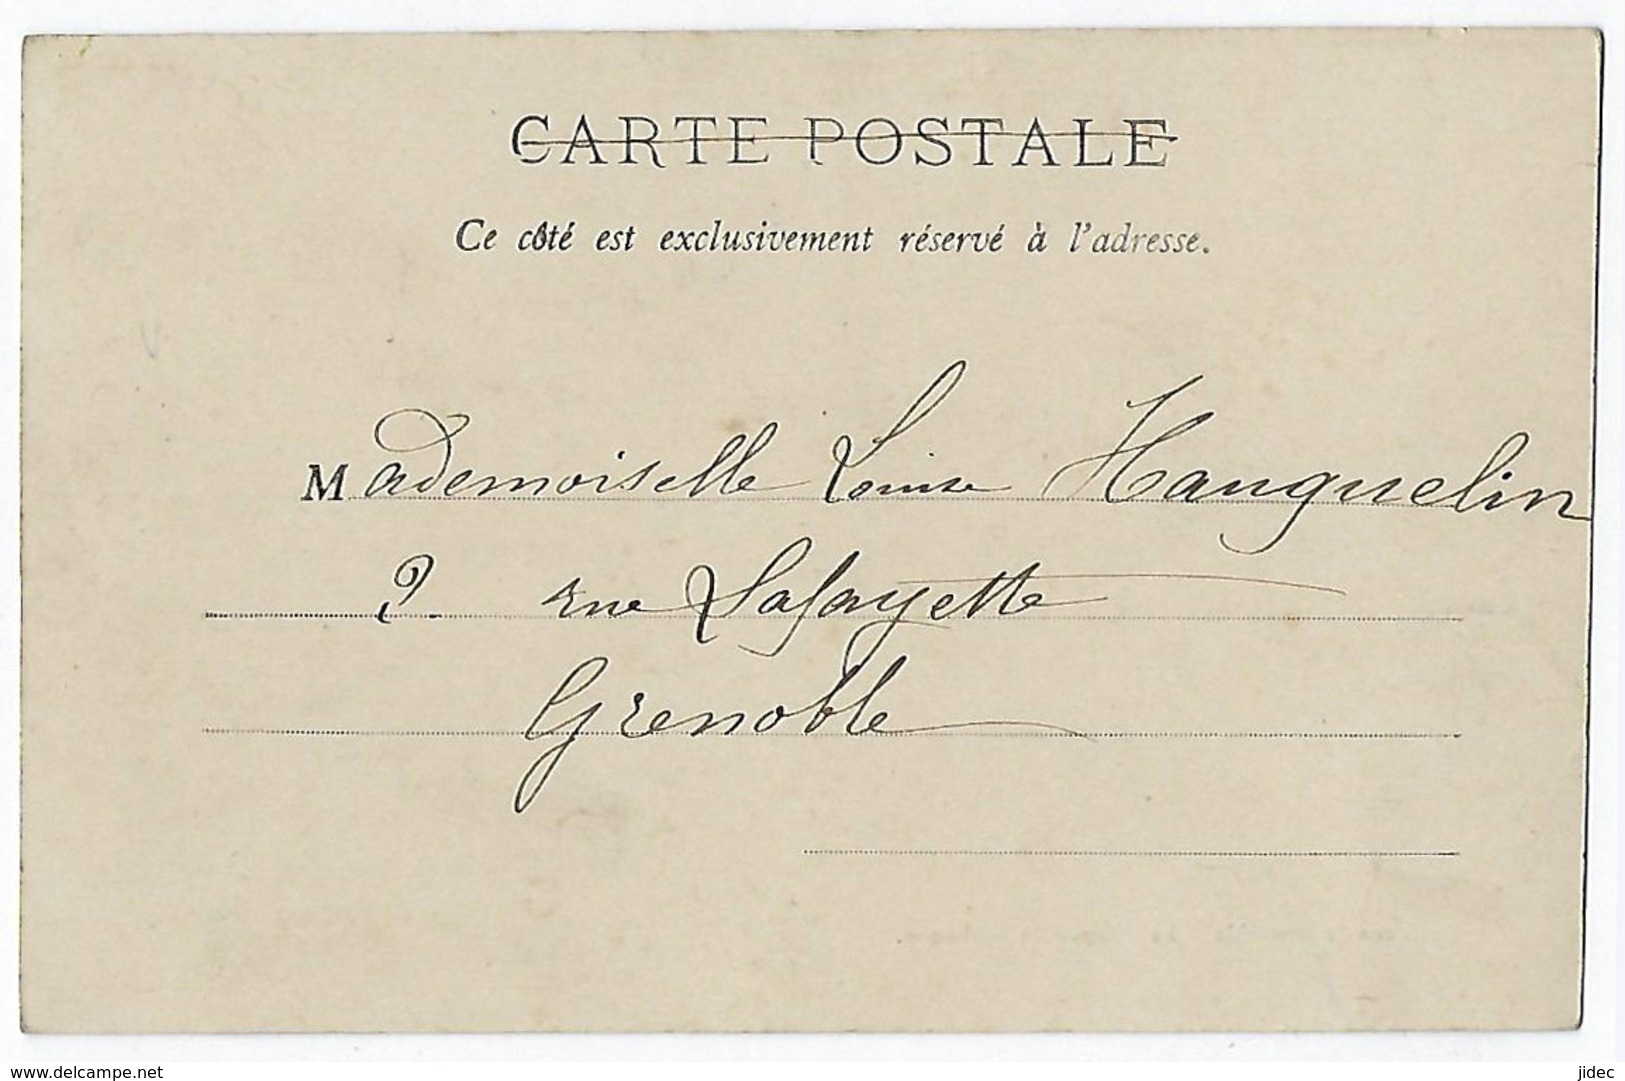 CARTE POSTALE
Ce côté est exclusivement réservé à l'adresse.
Mademoiselle Louise Hauguelin
9. rue Lafayette
Grenoble
www.delcampe.net
jidec